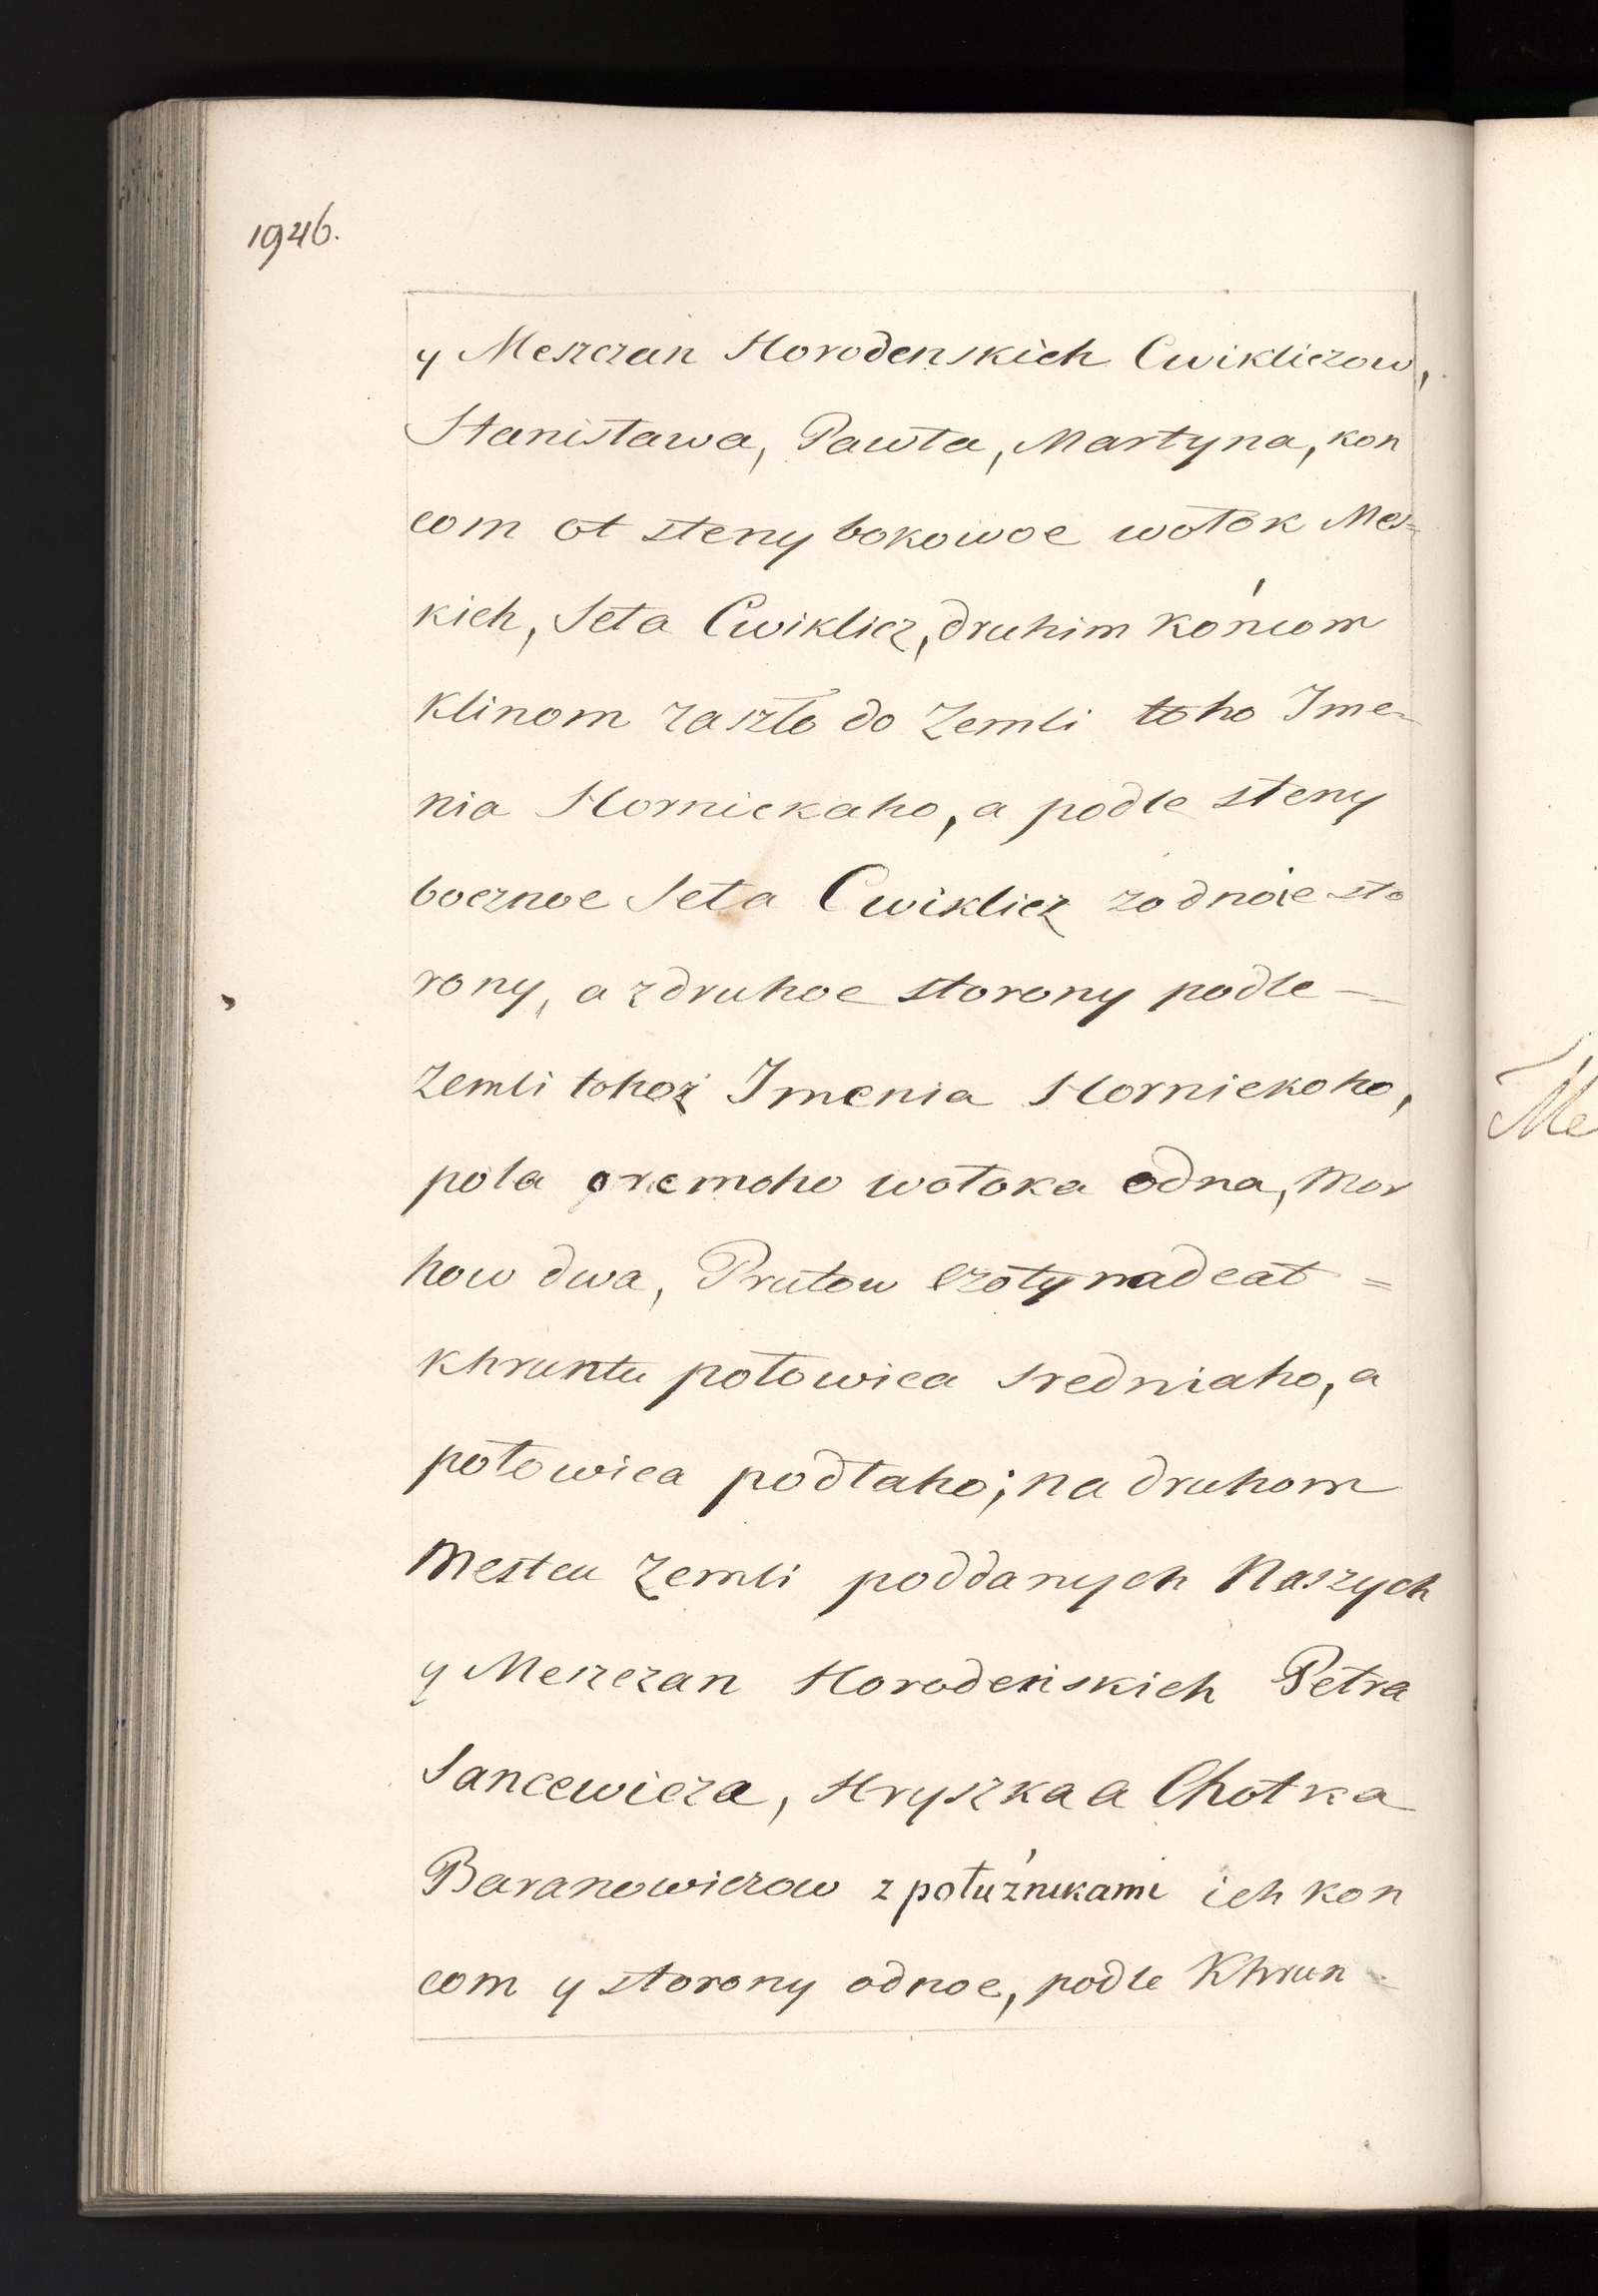 1946.
y Meszczan Horodenskich Cwikliczow,
Stanisława, Pawła, Martyna, kon
com ot steny bokowoe wołok Mes=
kich, Seła Cwiklicz, druhim końcom
klinom zaszło do Zemli toho Ime-
nia Hornickaho, a podle steny
bocznoe Seła Cwiklicz zodnoie sto
rony, a zdruhoe storony podle —
Zemli tohoż Imenia Hornickoho,
pola oremoho wołoka odna, Mor
how dwa, Prutow czotyrnadcat =
Khruntu połowica sredniaho, a
połowica podłaho; na druhom
Mestcu Zemli poddanych Naszych
y Meszczan Horodeńskich Petra
Sancewicza, Hryszka a Chotka
Baranowiczow z połużnikami ich kon
com y storony odnoe, podle Khrun -
Me